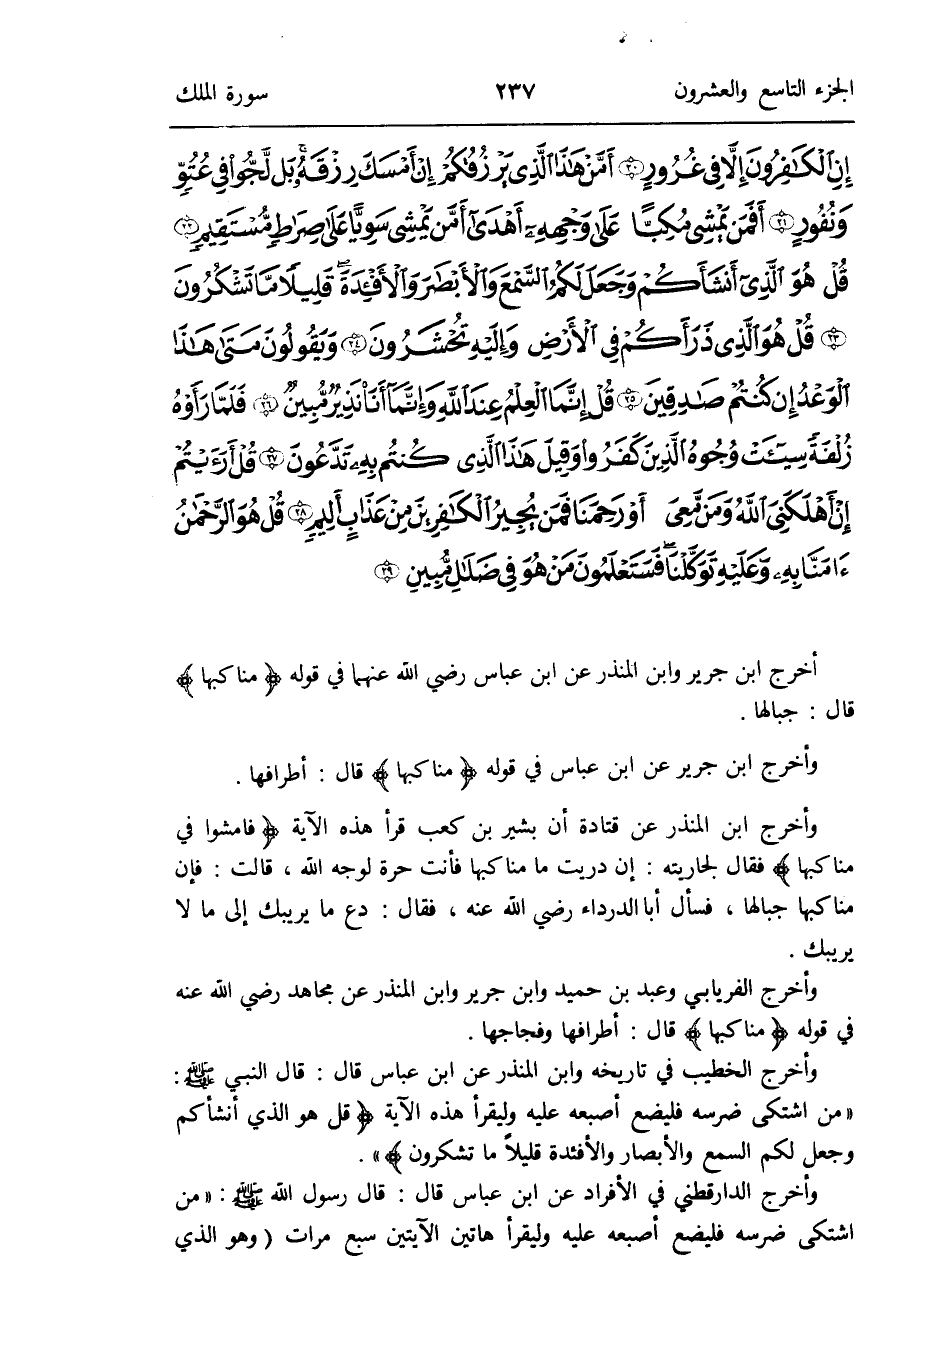 الجزء التاسع والعشرون ٢٣٧ سورة الملك
إِنِ ٱلْكَـٰفِرُونَ إِلَّا فِى غُرُورٍ ۝٢٠ أَمَّنْ هَـٰذَا ٱلَّذِى يَرْزُقُكُمْ إِنْ أَمْسَكَ رِزْقَهُۥ ۚ بَل لَّجُّوا۟ فِى عُتُوٍّ
وَنُفُورٍ ۝٢١ أَفَمَن يَمْشِى مُكِبًّا عَلَىٰ وَجْهِهِۦٓ أَهْدَىٰٓ أَمَّن يَمْشِى سَوِيًّا عَلَىٰ صِرَٰطٍ مُّسْتَقِيمٍ ۝٢٢
قُلْ هُوَ ٱلَّذِىٓ أَنشَأَكُمْ وَجَعَلَ لَكُمُ ٱلسَّمْعَ وَٱلْأَبْصَـٰرَ وَٱلْأَفْـِٔدَةَ ۖ قَلِيلًا مَّا تَشْكُرُونَ
۝٢٣ قُلْ هُوَ ٱلَّذِى ذَرَأَكُمْ فِى ٱلْأَرْضِ وَإِلَيْهِ تُحْشَرُونَ ۝٢٤ وَيَقُولُونَ مَتَىٰ هَـٰذَا
ٱلْوَعْدُ إِن كُنتُمْ صَـٰدِقِينَ ۝٢٥ قُلْ إِنَّمَا ٱلْعِلْمُ عِندَ ٱللَّهِ وَإِنَّمَآ أَنَا۠ نَذِيرٌ مُّبِينٌ ۝٢٦ فَلَمَّا رَأَوْهُ
زُلْفَةً سِيٓـَٔتْ وُجُوهُ ٱلَّذِينَ كَفَرُوا۟ وَقِيلَ هَـٰذَا ٱلَّذِى كُنتُم بِهِۦ تَدَّعُونَ ۝٢٧ قُلْ أَرَءَيْتُمْ
إِنْ أَهْلَكَنِىَ ٱللَّهُ وَمَن مَّعِىَ أَوْ رَحِمَنَا فَمَن يُجِيرُ ٱلْكَـٰفِرِينَ مِنْ عَذَابٍ أَلِيمٍ ۝٢٨ قُلْ هُوَ ٱلرَّحْمَـٰنُ
ءَامَنَّا بِهِۦ وَعَلَيْهِ تَوَكَّلْنَا ۖ فَسَتَعْلَمُونَ مَنْ هُوَ فِى ضَلَـٰلٍ مُّبِينٍ ۝٢٩
أخرج ابن جرير وابن المنذر عن ابن عباس رضي الله عنهما في قوله ﴿ مناكبها ﴾
قال : جبالها .
وأخرج ابن جرير عن ابن عباس في قوله ﴿ مناكبها ﴾ قال : أطرافها .
وأخرج ابن المنذر عن قتادة أن بشير بن كعب قرأ هذه الآية ﴿ فامشوا في
مناكبها ﴾ فقال لجاريته : إن دريت ما مناكبها فأنت حرة لوجه الله ، قالت : فإن
مناكبها جبالها ، فسأل أبا الدرداء رضي الله عنه ، فقال : دع ما يريبك إلى ما لا
يريبك .
وأخرج الفريابي وعبد بن حميد وابن جرير وابن المنذر عن مجاهد رضي الله عنه
في قوله ﴿ مناكبها ﴾ قال : أطرافها وفجاجها .
وأخرج الخطيب في تاريخه وابن المنذر عن ابن عباس قال : قال النبي ﷺ :
« من اشتكى ضرسه فليضع أصبعه عليه وليقرأ هذه الآية ﴿ قل هو الذي أنشأكم
وجعل لكم السمع والأبصار والأفئدة قليلاً ما تشكرون ﴾ » .
وأخرج الدارقطني في الأفراد عن ابن عباس قال : قال رسول الله ﷺ : « من
اشتكى ضرسه فليضع أصبعه عليه وليقرأ هاتين الآيتين سبع مرات ( وهو الذي